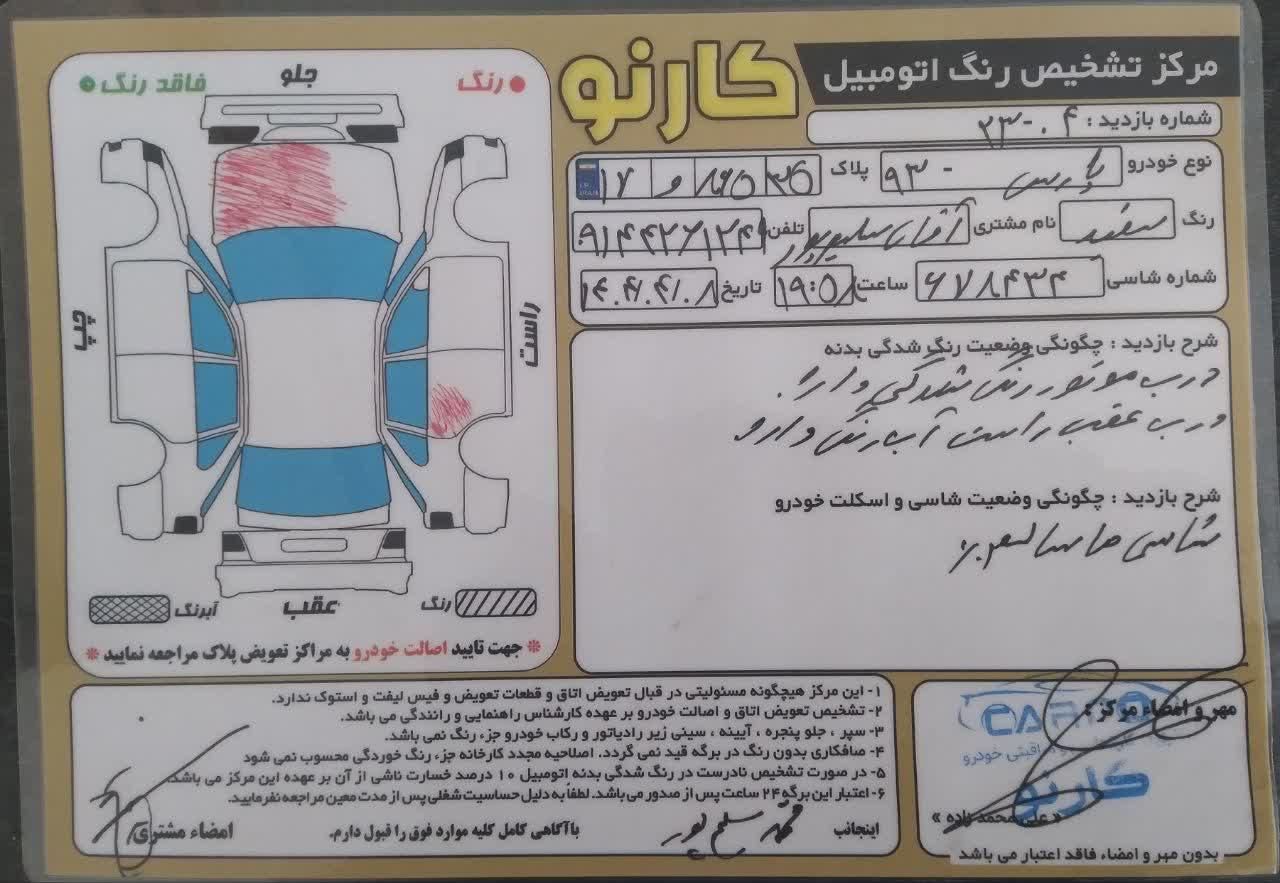 مرکز تشخیص رنگ اتومبیل
کارنو
شماره بازدید : ۲۳-۰۴
نوع خودرو پارس - ۹۳ پلاک ۱۷ و ۸۶۵ ۳۵
رنگ سفید نام مشتری آقای سلیم‌پور تلفن ۰۹۱۴۴۲۶۱۲۴۱
شماره شاسی ۶۷۸۴۳۴ ساعت ۱۹:۵۸ تاریخ ۱۴۰۴/۰۴/۰۸
شرح بازدید : چگونگی وضعیت رنگ شدگی بدنه
درب موتور رنگ شدگی دارد.
درب عقب راست آبرنگ دارد
شرح بازدید : چگونگی وضعیت شاسی و اسکلت خودرو
شاسی ها سالم
رنگ
جلو
فاقد رنگ
چپ
راست
عقب
رنگ
آبرنگ
* جهت تایید اصالت خودرو به مراکز تعویض پلاک مراجعه نمایید *
مهر و امضاء مرکز :
کارنو
« علی محمد زاده »
بدون مهر و امضاء فاقد اعتبار می باشد
۱- این مرکز هیچگونه مسئولیتی در قبال تعویض اتاق و قطعات تعویض و فیس لیفت و استوک ندارد.
۲- تشخیص تعویض اتاق و اصالت خودرو بر عهده کارشناس راهنمایی و رانندگی می باشد.
۳- سپر ، جلو پنجره ، آیینه ، سینی زیر رادیاتور و رکاب خودرو جزء رنگ نمی باشد.
۴- صافکاری بدون رنگ در برگه قید نمی گردد. اصلاحیه مجدد کارخانه جزء رنگ خوردگی محسوب نمی شود
۵- در صورت تشخیص نادرست در رنگ شدگی بدنه اتومبیل ۱۰ درصد خسارت ناشی از آن بر عهده این مرکز می باشد.
۶- اعتبار این برگه ۲۴ ساعت پس از صدور می باشد. لطفاً به دلیل حساسیت شغلی پس از مدت معین مراجعه نفرمایید.
اینجانب محمد سلیم پور با آگاهی کامل کلیه موارد فوق را قبول دارم. امضاء مشتری